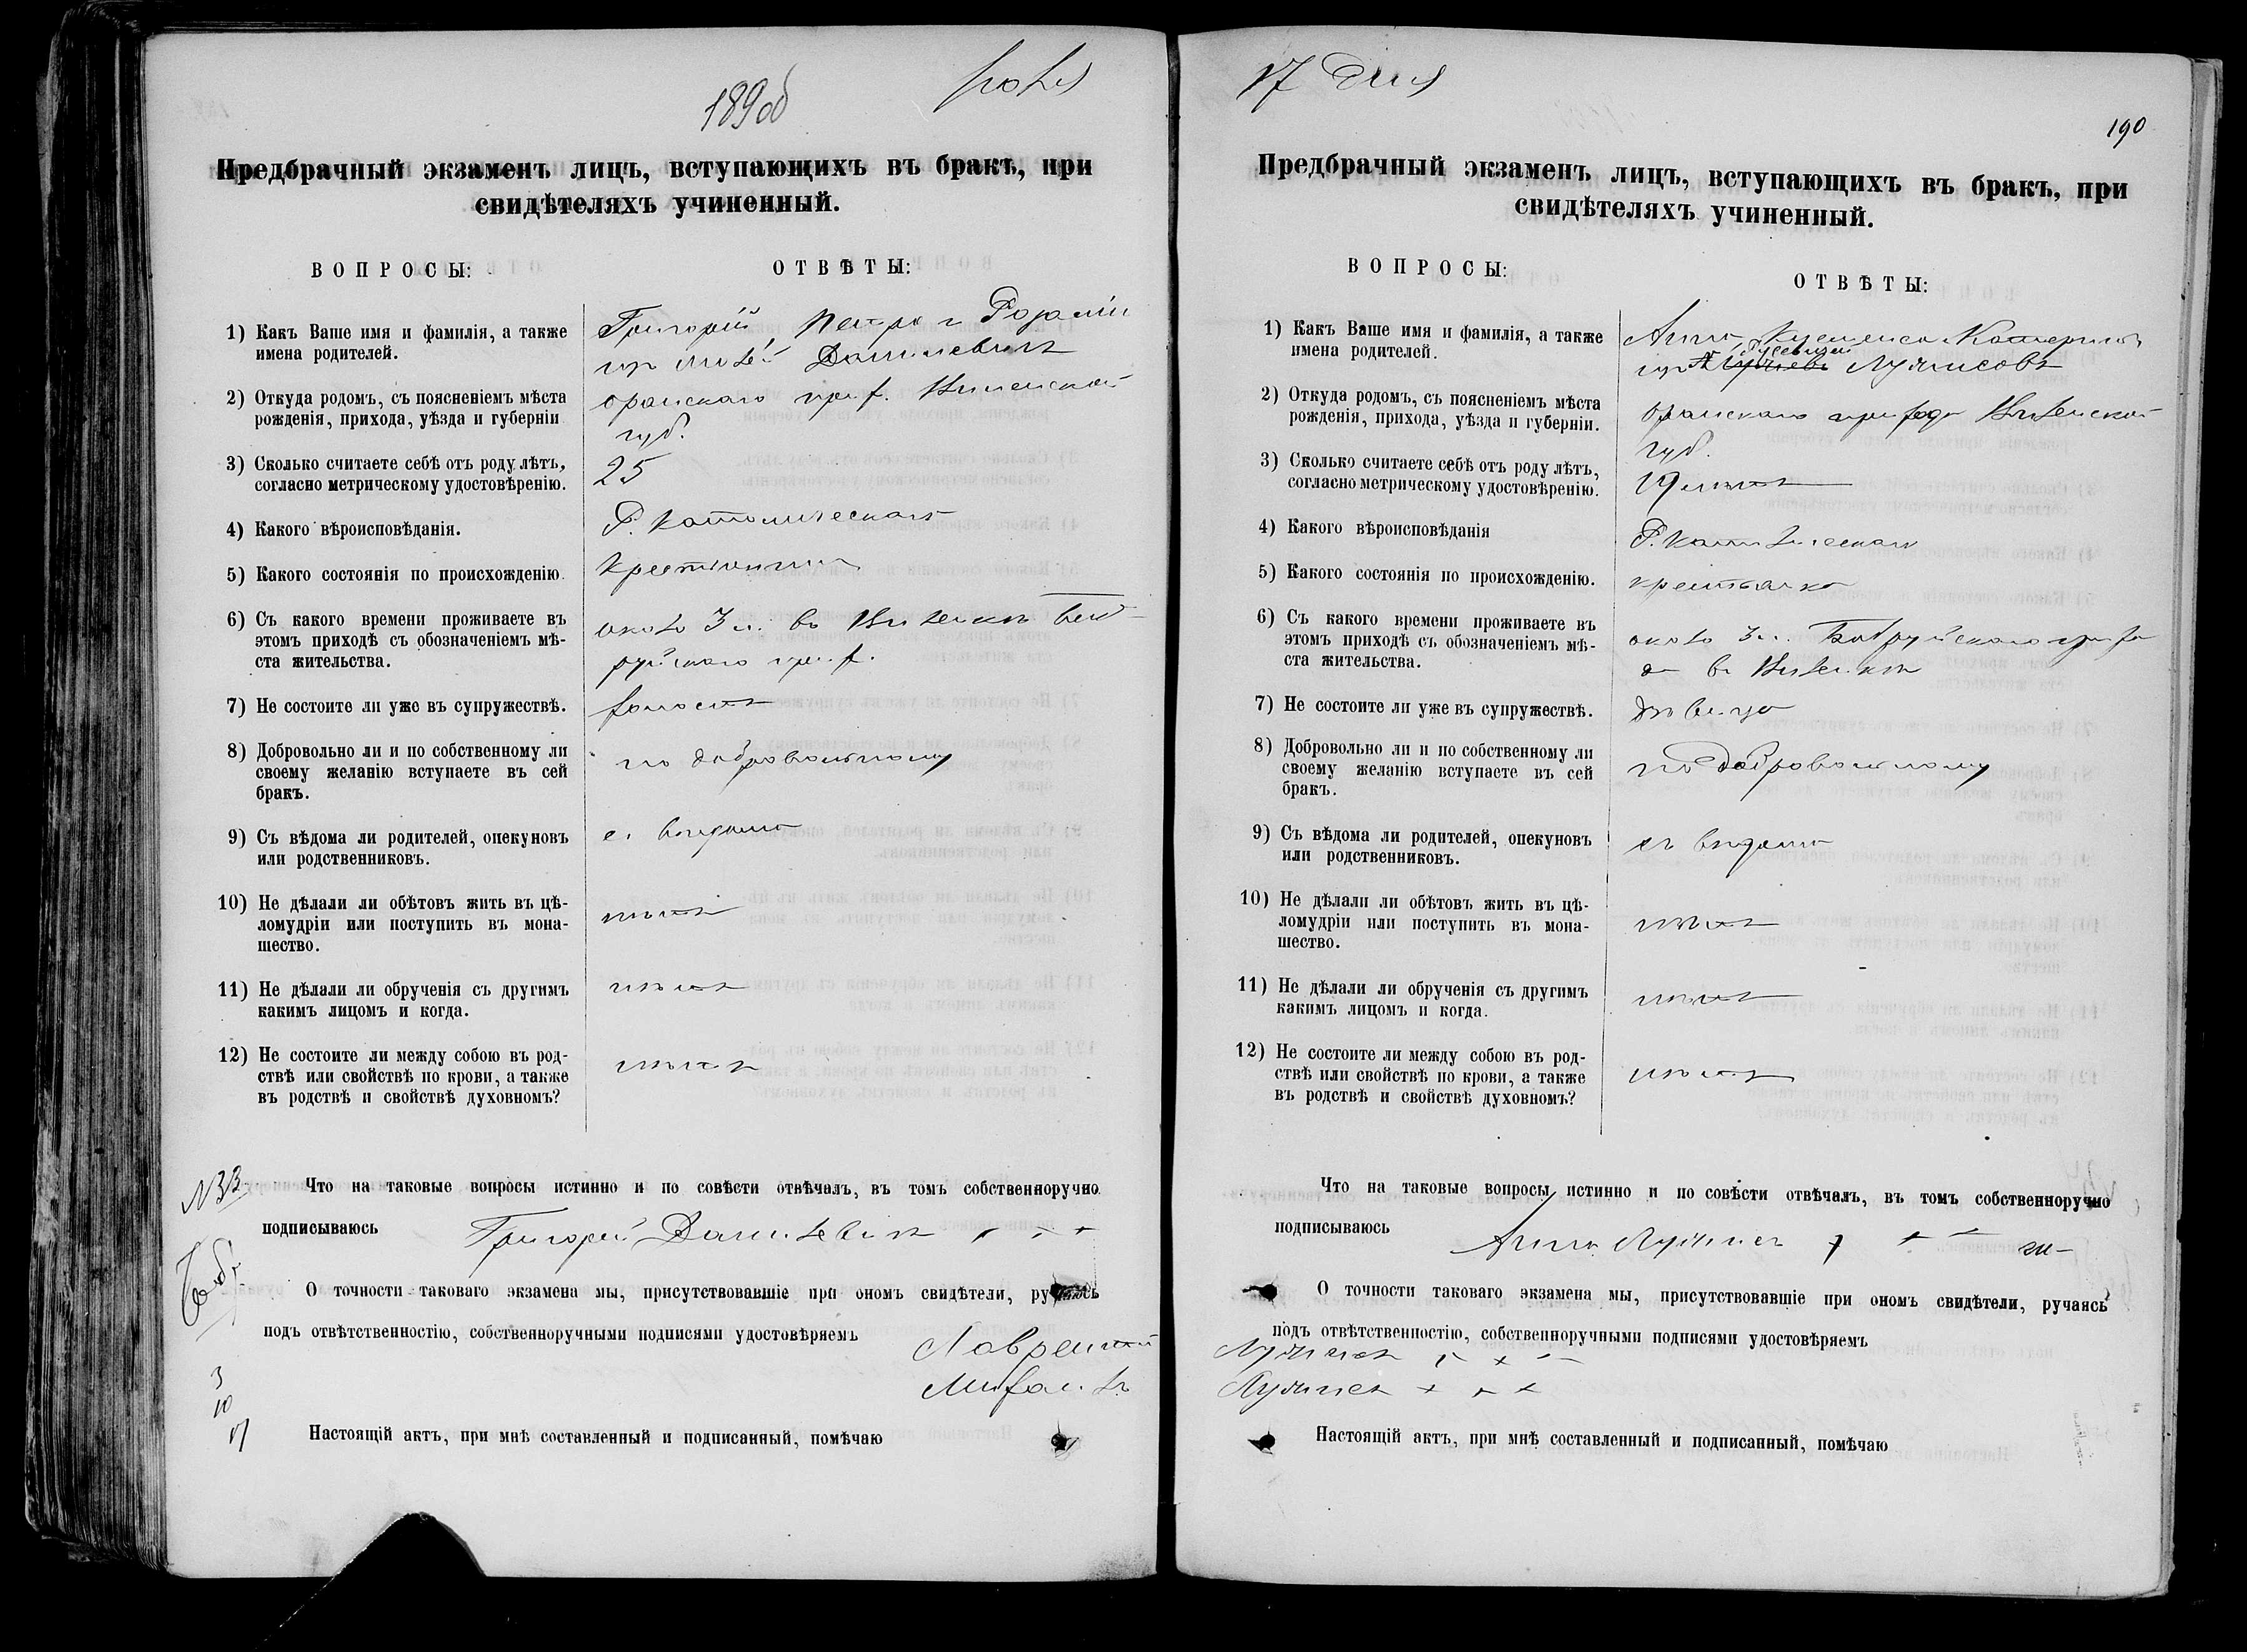 189
Предбрачный экзаменъ лицъ, вступающихъ въ бракъ, при
свидѣтеляхъ учиненный.
ВОПРОСЫ:
ОТВѢТЫ:
1) Какъ Ваше имя и фамилія, а также
имена родителей.
Григорій Петра и Розаліи
Данилевичъ
2) Откуда родомъ, съ поясненіемъ мѣста
рожденія, прихода, уѣзда и губерніи
Виленской
губ.
3) Сколько считаете себѣ отъ роду лѣтъ,
согласно метрическому удостовѣренію.
25
4) Какого вѣроисповѣданія.
Р. Католическаго
5) Какого состоянія по происхожденію.
Крестьянинъ
6) Съ какого времени проживаете въ
этомъ приходѣ съ обозначеніемъ мѣ-
ста жительства.
около 3
7) Не состоите ли уже въ супружествѣ.
холостъ
8) Добровольно ли и по собственному ли
своему желанію вступаете въ сей
бракъ.
по добровольному
9) Съ вѣдома ли родителей, опекуновъ
или родственниковъ.
съ вѣдома
10) Не дѣлали ли обѣтовъ жить въ цѣ-
ломудріи или поступить въ мона-
шество.
нѣтъ
11) Не дѣлали ли обрученія съ другимъ
какимъ лицомъ и когда.
нѣтъ
12) Не состоите ли между собою въ род-
ствѣ или свойствѣ по крови, а также
въ родствѣ и свойствѣ духовномъ?
нѣтъ
Что на таковые вопросы истинно и по совѣсти отвѣчалъ, въ томъ собственноручно
подписываюсь Григорій Данилевичъ + + +
О точности таковаго экзамена мы, присутствовавшіе при ономъ свидѣтели, ручаясь
подъ отвѣтственностію, собственноручными подписями удостовѣряемъ
Лаврентій
Михаилъ
3
10
17
Настоящій актъ, при мнѣ составленный и подписанный, помѣчаю
17 Дня
190
Предбрачный экзаменъ лицъ, вступающихъ въ бракъ, при
свидѣтеляхъ учиненный.
ВОПРОСЫ:
ОТВѢТЫ:
1) Какъ Ваше имя и фамилія, а также
имена родителей.
Анна
2) Откуда родомъ, съ поясненіемъ мѣста
рожденія, прихода, уѣзда и губерніи.
прихода Виленской
губ.
3) Сколько считаете себѣ отъ роду лѣтъ,
согласно метрическому удостовѣренію.
19 лѣтъ
4) Какого вѣроисповѣданія
Р. Католическаго
5) Какого состоянія по происхожденію.
крестьянка
6) Съ какого времени проживаете въ
этомъ приходѣ съ обозначеніемъ мѣ-
ста жительства.
около 3
7) Не состоите ли уже въ супружествѣ.
дѣвица
8) Добровольно ли и по собственному ли
своему желанію вступаете въ сей
бракъ.
по добровольному
9) Съ вѣдома ли родителей, опекуновъ
или родственниковъ.
съ вѣдома
10) Не дѣлали ли обѣтовъ жить въ цѣ-
ломудріи или поступить въ мона-
шество.
нѣтъ
11) Не дѣлали ли обрученія съ другимъ
какимъ лицомъ и когда.
нѣтъ
12) Не состоите ли между собою въ род-
ствѣ или свойствѣ по крови, а также
въ родствѣ и свойствѣ духовномъ?
нѣтъ
Что на таковые вопросы истинно и по совѣсти отвѣчалъ, въ томъ собственноручно
подписываюсь Анна + + +
О точности таковаго экзамена мы, присутствовавшіе при ономъ свидѣтели, ручаясь
подъ отвѣтственностію, собственноручными подписями удостовѣряемъ
+ + +
+ + +
Настоящій актъ, при мнѣ составленный и подписанный, помѣчаю